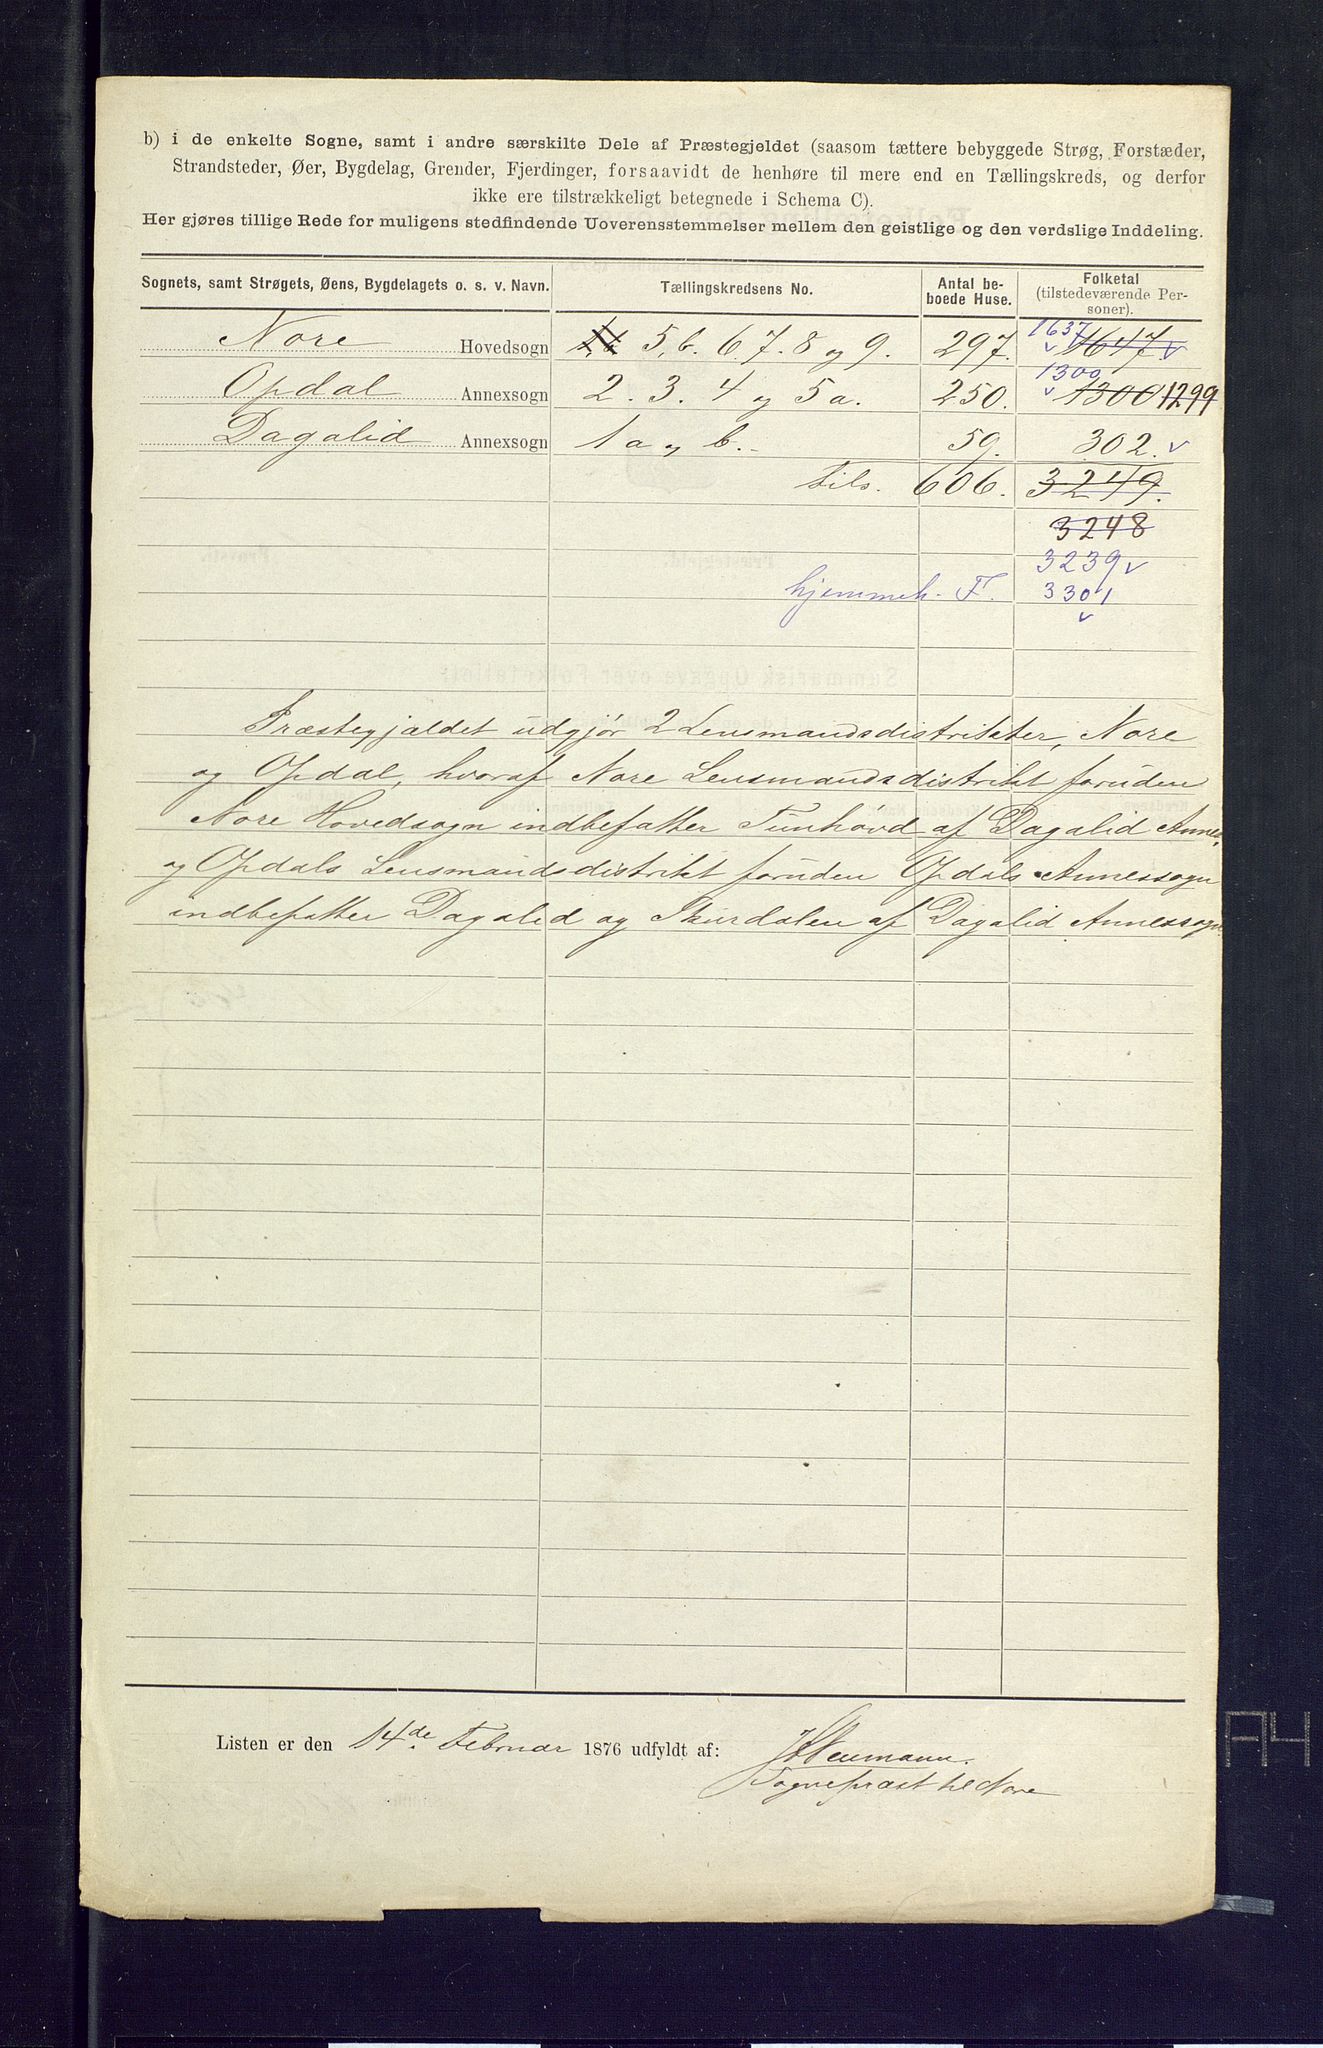 b) i de enkelte Sogne, samt i andre særskilte Dele af Præstegjeldet (saasom tættere bebyggede Strøg, Forstæder,
Strandsteder, Øer, Bygdelag, Grender, Fjerdinger, forsaavidt de henhøre til mere end en Tællingskreds, og derfor
ikke ere tilstrækkeligt betegnede i Schema C).
Her gjøres tillige Rede for muligens stedfindende Uoverensstemmelser mellem den geistlige og den verdslige Inddeling.
Sognets, samt Strøgets, Øens, Bygdelagets o. s. v. Navn. Tællingskredsens No. Antal beboede Huse. Folketal (tilstedeværende Personer).
Nore Hovedsogn 5,b. 6. 7. 8 og 9. 297. 1637 1647.
Opdal Annexsogn 2. 3. 4 og 5a. 250. 1300 1300 1299
Dagalid Annexsogn 1 a og b. 59. 302.
Tils. 606. 3249.
3248
3239
hjemmeh. F. 3301
Præstegjældet udgjør 2 Lensmandsdistrikter, Nore
og Opdal, hvoraf Nore Lensmandsdistrikt foruden
Nore Hovedsogn indbefatter Tunhövd af Dagalid Annex,
og Opdals Lensmandsdistrikt foruden Opdals Annexsogn
indbefatter Dagalid og Skurdalen af Dagalid Annexsogn.
Listen er den 14de Februar 1876 udfyldt af: Neumann.
Sognepræst til Nore
A4